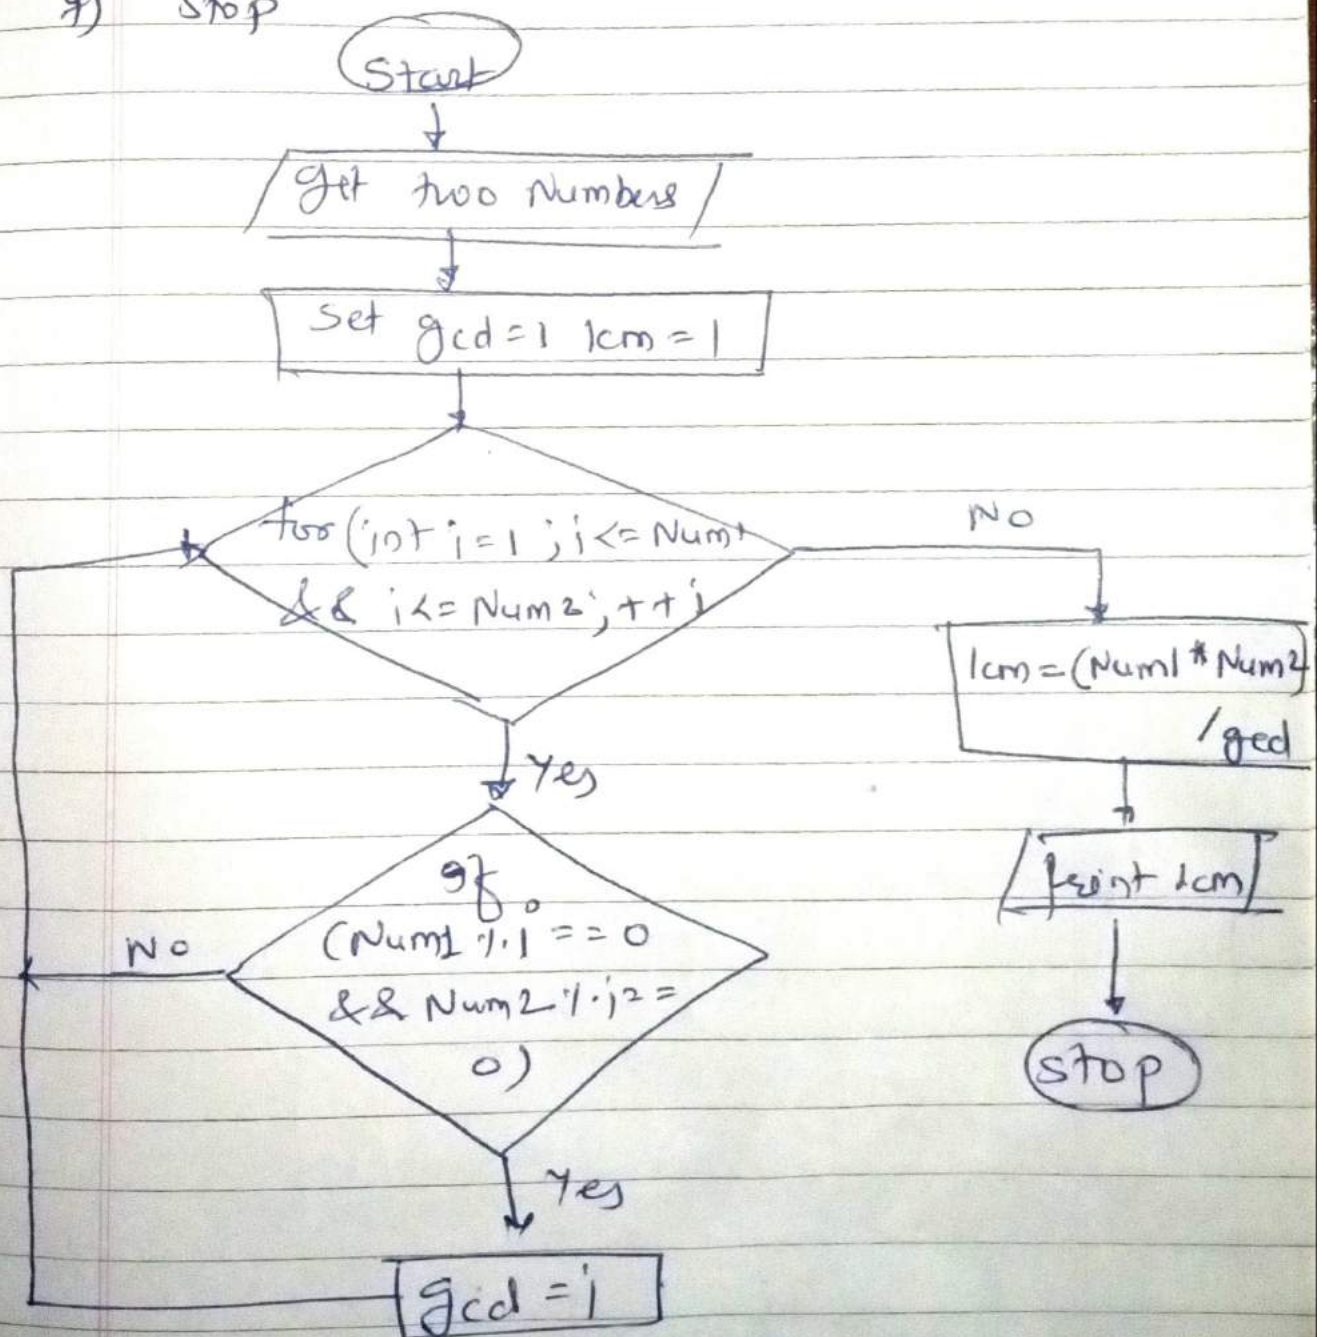 7) Stop
Start
Get two Numbers
Set gcd=1 lcm=1
for(int i=1; i<=Num1
&& i<=Num2; ++i
No
lcm=(Num1*Num2)
/gcd
Yes
Print lcm
If
(Num1%i==0
No
&& Num2%i==
0)
Stop
Yes
gcd=i